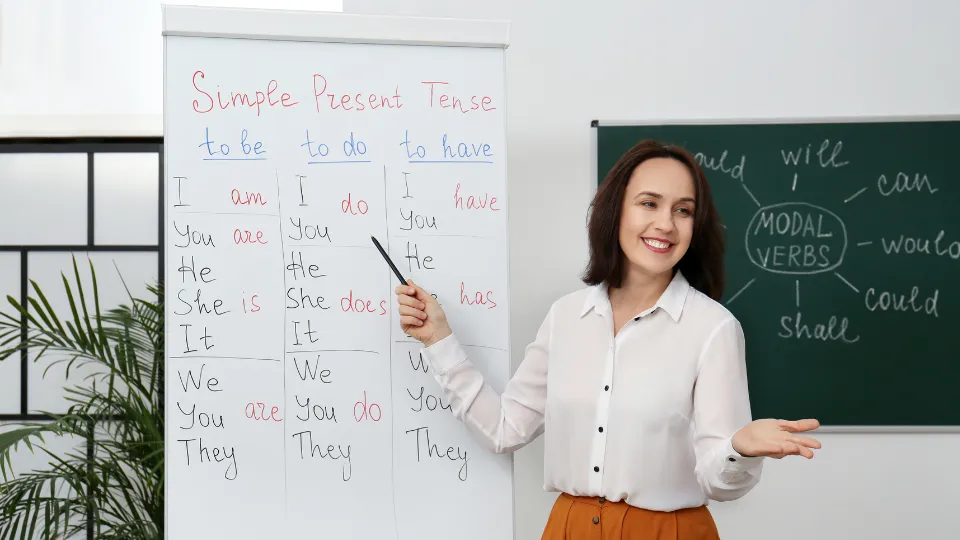 Simple Present Tense
to be to do to have
I am I do I have
You are You You
He He He
She is She does has
It It
We We
You are You do You
They They They
will
can
MODAL VERBS
would
could
shall